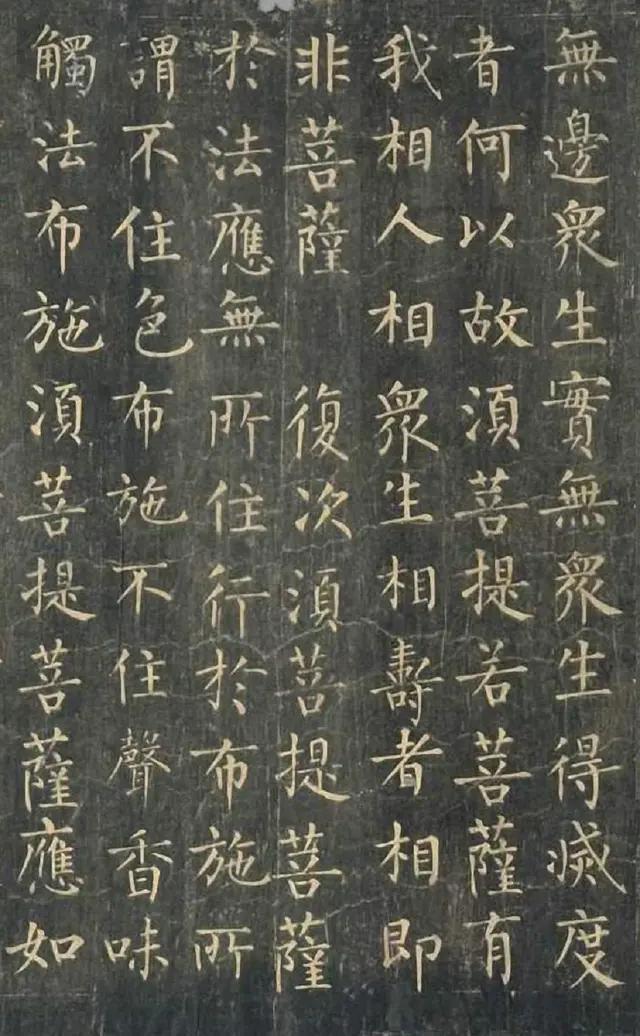 無邊衆生實無衆生得滅度
者何以故須菩提若菩薩有
我相人相衆生相壽者相即
非菩薩 復次須菩提菩薩
於法應無所住行於布施所
謂不住色布施不住聲香味
觸法布施須菩提菩薩應如